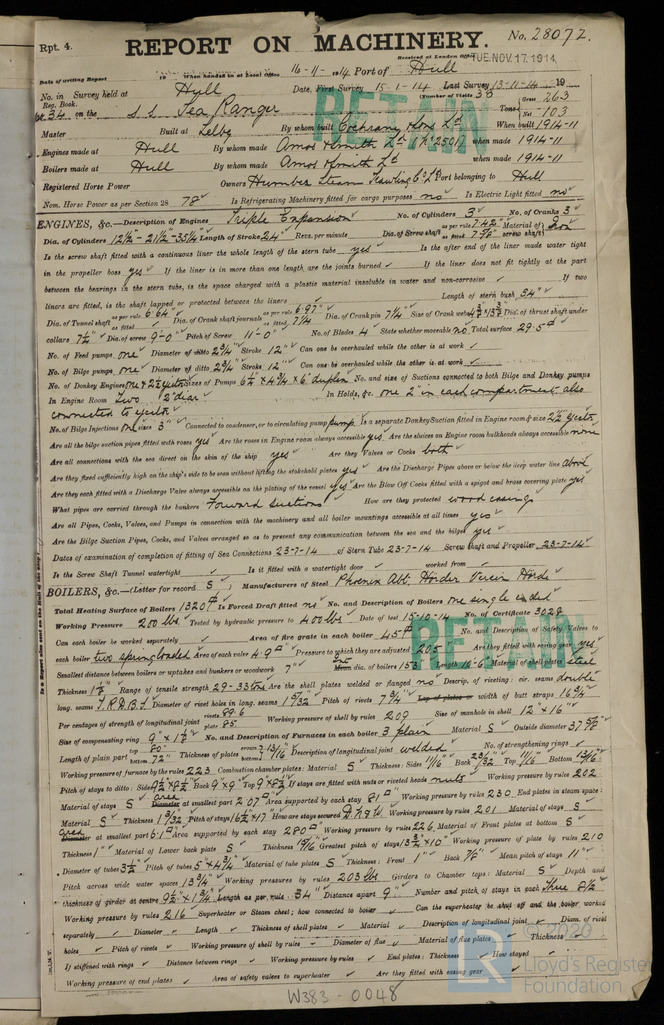 Rpt. 4.
REPORT ON MACHINERY.
No. 28072.
Received at London Office TUE. NOV. 17. 1914
Date of writing Report 19 When handed in at Local Office 16-11-1914 Port of Hull
No. in Survey held at Hull Date, First Survey 15-1-14 Last Survey 13-11-14 19
Reg. Book. (Number of Visits 38
34 on the S.S. Sea Ranger Tons Gross 263 Net 103
Master Built at Selby By whom built Cochrane & Sons Ld When built 1914-11
Engines made at Hull By whom made Amos & Smith Ld when made 1914-11
Boilers made at Hull By whom made Amos & Smith Ld when made 1914-11
Registered Horse Power Owners Humber Steam Trawling Co Ld Port belonging to Hull
Nom. Horse Power as per Section 28 78 Is Refrigerating Machinery fitted for cargo purposes no Is Electric Light fitted no
RETAIN
ENGINES, &c.—Description of Engines Triple Expansion No. of Cylinders 3 No. of Cranks 3
Dia. of Cylinders 12½-21½-35¼ Length of Stroke 24 Revs. per minute Dia. of Screw shaft as per rule 7.42 Material of Iron
Is the screw shaft fitted with a continuous liner the whole length of the stern tube yes Is the after end of the liner made water tight
in the propeller boss yes If the liner is in more than one length are the joints burned If the liner does not fit tightly at the part
between the bearings in the stern tube, is the space charged with a plastic material insoluble in water and non-corrosive If two
liners are fitted, is the shaft lapped or protected between the liners Length of stern bush 34"
Dia. of Tunnel shaft as per rule 6.64 Dia. of Crank shaft journals as per rule 6.97 as fitted 7¼ Dia. of Crank pin 7¼ Size of Crank webs Dia. of thrust shaft under
collars 7½ Dia. of screw 9'-0" Pitch of Screw 11'-0" No. of Blades 4 State whether moveable no Total surface 29.5
No. of Feed pumps one Diameter of ditto 2¾ Stroke 12" Can one be overhauled while the other is at work
No. of Bilge pumps one Diameter of ditto 2¾ Stroke 12" Can one be overhauled while the other is at work
No. of Donkey Engines Sizes of Pumps duplex No. and size of Suctions connected to both Bilge and Donkey pumps
In Engine Room Two 2" diar In Holds, &c. one 2" in each compartment also
connected to ejector
No. of Bilge Injections one sizes 3" Connected to condenser, or to circulating pump pump Is a separate Donkey Suction fitted in Engine room & size 2½ ejector
Are all the bilge suction pipes fitted with roses yes Are the roses in Engine room always accessible yes Are the sluices on Engine room bulkheads always accessible none
Are all connections with the sea direct on the skin of the ship yes Are they Valves or Cocks both
Are they fixed sufficiently high on the ship's side to be seen without lifting the stokehold plates yes Are the Discharge Pipes above or below the deep water line above
Are they each fitted with a Discharge Valve always accessible on the plating of the vessel yes Are the Blow Off Cocks fitted with a spigot and brass covering plate yes
What pipes are carried through the bunkers Forward suctions How are they protected wood casings
Are all Pipes, Cocks, Valves, and Pumps in connection with the machinery and all boiler mountings accessible at all times yes
Are the Bilge Suction Pipes, Cocks, and Valves arranged so as to prevent any communication between the sea and the bilges yes
Dates of examination of completion of fitting of Sea Connections 23-7-14 of Stern Tube 23-7-14 Screw shaft and Propeller 23-7-14
Is the Screw Shaft Tunnel watertight Is it fitted with a watertight door worked from
BOILERS, &c.—(Letter for record S) Manufacturers of Steel Phoenix Abt. Hörder Verein Hörde
Total Heating Surface of Boilers 1320 Is Forced Draft fitted no No. and Description of Boilers one single ended
Working Pressure 200 lbs Tested by hydraulic pressure to 400 lbs Date of test 15-10-14 No. of Certificate 3028
Can each boiler be worked separately Area of fire grate in each boiler 45 No. and Description of Safety Valves to
each boiler two spring loaded Area of each valve 4.9 Pressure to which they are adjusted 205 Are they fitted with easing gear yes
RETAIN
Smallest distance between boilers or uptakes and bunkers or woodwork 7" dia. of boilers Length Material of shell plates steel
Thickness Range of tensile strength 29-33 tons Are the shell plates welded or flanged no Descrip. of riveting: cir. seams double
long. seams T.R.D.B.S Diameter of rivet holes in long. seams 1 5/32 Pitch of rivets 7¾ width of butt straps 16¾
Per centages of strength of longitudinal joint rivets 89.6 plate 85 Working pressure of shell by rules 209 Size of manhole in shell 12" × 16"
Size of compensating ring No. and Description of Furnaces in each boiler 3 plain Material S Outside diameter
Length of plain part top 80" bottom 72" Thickness of plates 13/16 Description of longitudinal joint welded No. of strengthening rings
Working pressure of furnace by the rules 223 Combustion chamber plates: Material S Thickness: Sides 11/16 Back 23/32 Top 11/16 Bottom
Pitch of stays to ditto: Sides Back 9"×9" Top If stays are fitted with nuts or riveted heads nuts Working pressure by rules 202
Material of stays S area at smallest part 2.07 Area supported by each stay 81 Working pressure by rules 230 End plates in steam space:
Material S Thickness Pitch of stays How are stays secured Working pressure by rules 201 Material of stays S
area at smallest part 6.1 Area supported by each stay 280 Working pressure by rules 226 Material of Front plates at bottom S
Thickness 1" Material of Lower back plate S Thickness Greatest pitch of stays Working pressure of plate by rules 210
Diameter of tubes 3½ Pitch of tubes Material of tube plates S Thickness: Front 1" Back 7/8" Mean pitch of stays 11"
Pitch across wide water spaces 13¾ Working pressures by rules 203 lbs Girders to Chamber tops: Material S Depth and
thickness of girder at centre Length as per rule 34" Distance apart 9" Number and pitch of stays in each Three 8½
Working pressure by rules 216 Superheater or Steam chest; how connected to boiler Can the superheater be shut off and the boiler worked
separately Diameter Length Thickness of shell plates Material Description of longitudinal joint Diam. of rivet
holes Pitch of rivets Working pressure of shell by rules Diameter of flue Material of flue plates Thickness
If stiffened with rings Distance between rings Working pressure by rules End plates: Thickness How stayed
Working pressure of end plates Area of safety valves to superheater Are they fitted with easing gear
© 2020
LR
Lloyd's Register
Foundation
W383-0048